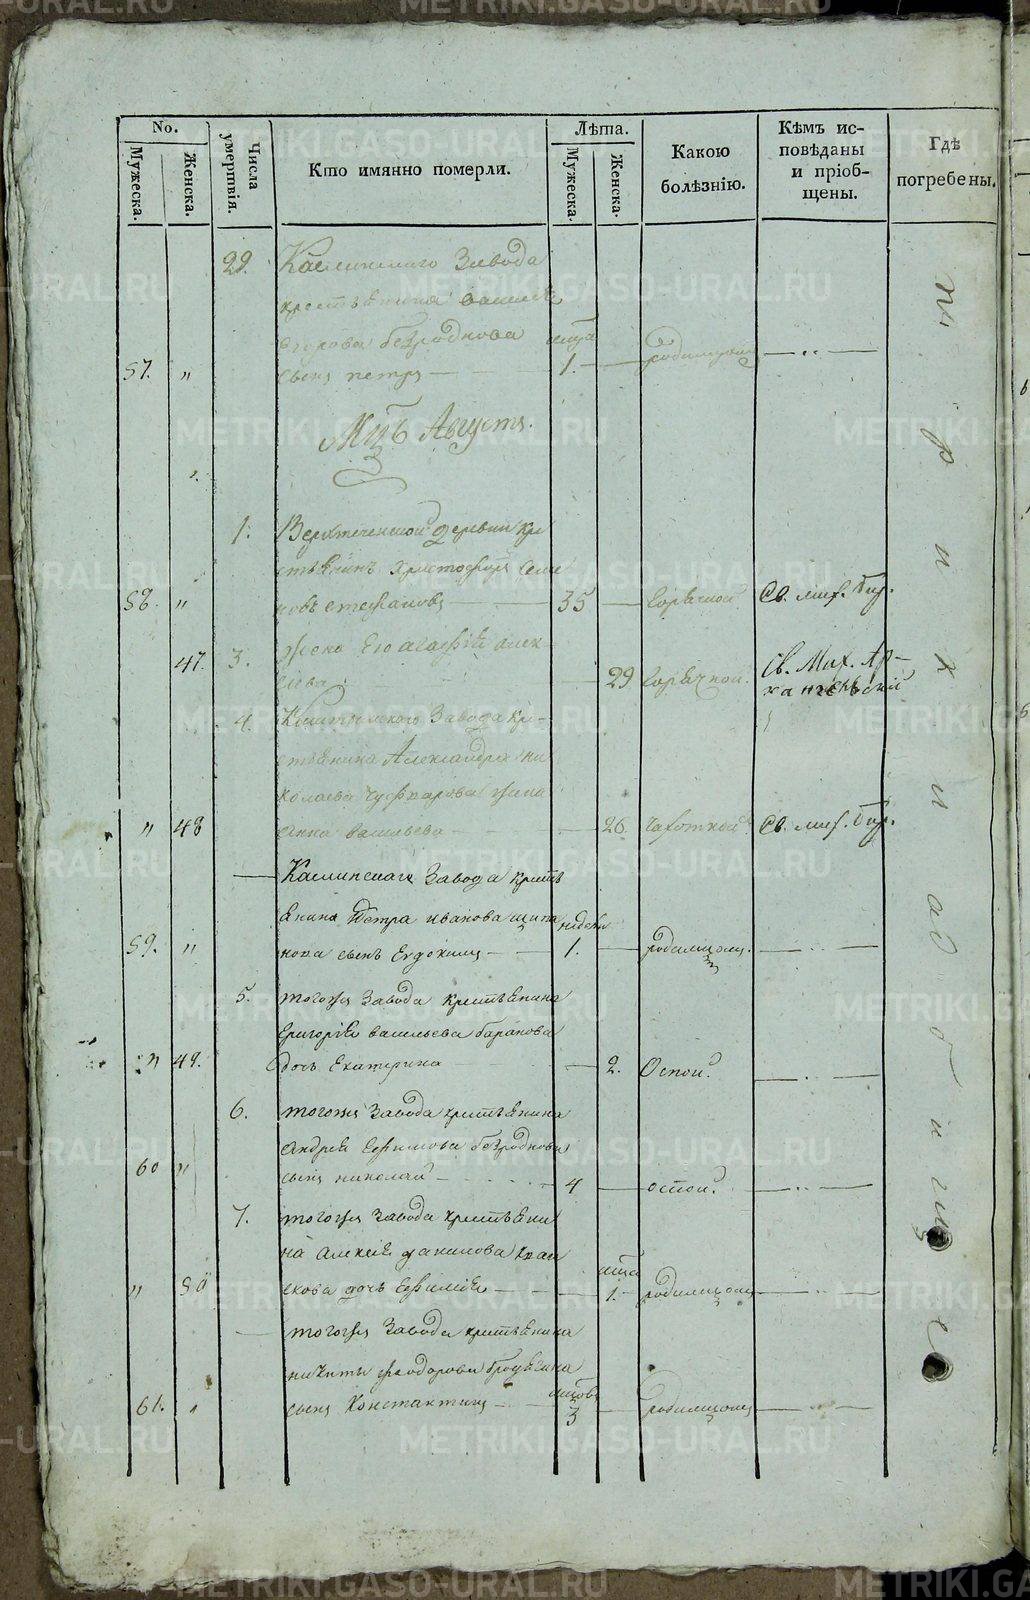 No.
Мужеска.
Женска.
Числа умертвія.
Кто имянно померли.
Лѣта.
Мужеска.
Женска.
Какою болѣзнію.
Кѣмъ ис-
повѣданы
и пріоб-
щены.
Гдѣ
погребены.
29. Каслинскаго Завода
крестьянина василія
егорова безроднова
57. " сынъ петръ — 1. — родимцомъ — " —
Мцъ Августъ.
1. Верхтеченской деревни кре
стьянинъ христофоръ семе
58. " новъ стефановъ — 35 — горячкой Св. мих. Бир.
47. 3. жена Его агафія алек
сѣева 29 горячкой. Св. Мих. Ар-
хангельскій
4. Кыштымскаго Завода кре-
стьянина Александра ни
колаева жена
" 48 анна васильева — 26. чахоткой Св. мих. Бир.
— Каслинскаго Завода кресть
янина Петра иванова щипа
недели
59. " нова сынъ Евдокимъ — 1. — родимцомъ. — " —
5. тогожъ Завода крестьянина
григорія васильева баранова
" 49. дочь Екатерина — 2. Оспой. — " —
6. тогожъ Завода крестьянина
андрея Ефимова безроднова
60 " сынъ николай — 4 — оспой. — " —
7. тогожъ Завода крестьяни
на алексія данилова
" 50 дочь Ефимія — 1. — родимцомъ — " —
— тогожъ Завода крестьянина
никиты феодорова
61. " сынъ Константинъ — 3 — родимцомъ — " —
на приходском кладбище
METRIKI.GASO-URAL.RU